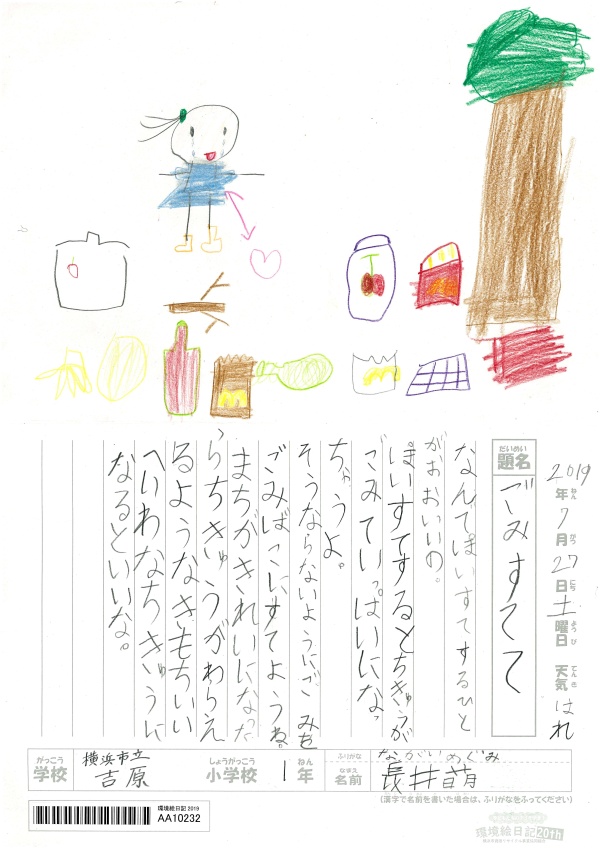 2019年7月27日土曜日 天気 はれ
ねん がつ にち ようび てんき
だいめい
題名 ごみすてて
なんでぽいすてするひと
がおおいいの。
ぽいすてするとちきゅうが
ごみでいっぱいになっ
ちゃうよ。
そうならないようにごみを
ごみばこにすてようね。
まちがきれいになった
らちきゅうがわらえ
るようなきもちいい
へいわなちきゅうに
なるといいな。
がっこう しょうがっこう ねん ふりがな ながいめぐみ
学校 横浜市立 吉原 小学校 1年 なまえ 名前 長井萌
(漢字で名前を書いた場合は、ふりがなをふってください)
環境絵日記 2019
AA10232
環境絵日記 20th